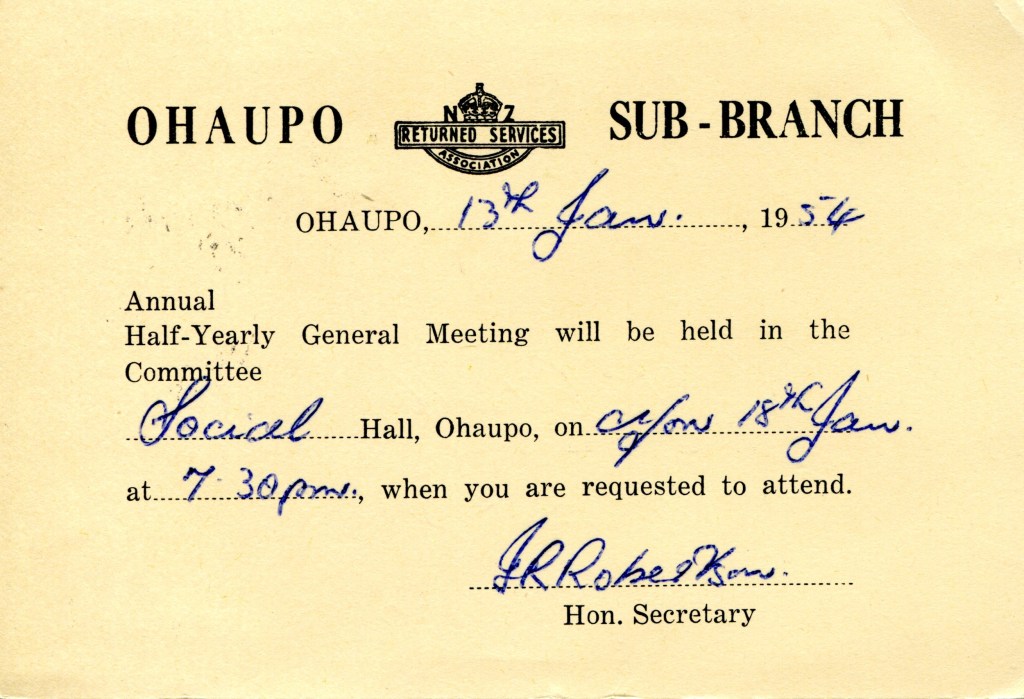 OHAUPO N Z SUB-BRANCH
RETURNED SERVICES
ASSOCIATION
OHAUPO, 13th Jan. , 19 54
Annual
Half-Yearly General Meeting will be held in the
Committee
Social Hall, Ohaupo, on 18th Jan.
at 7.30pm., when you are requested to attend.
J R Robertson.
Hon. Secretary